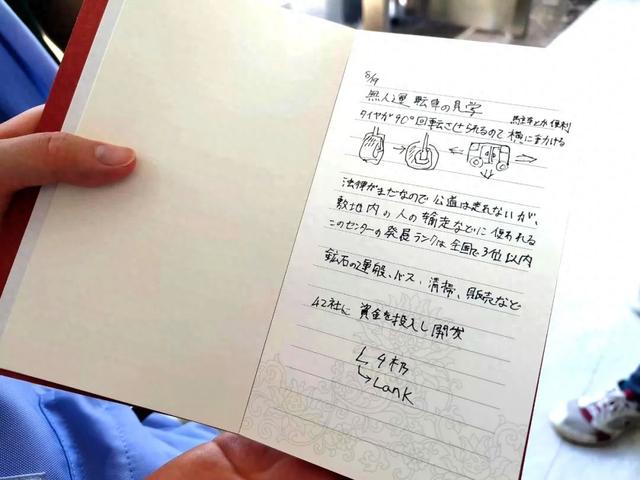 8/19
無人運転車の見学
駐車とか便利
タイヤが90°回転させられるので横に動ける
法律がまだなので公道は走れないが、
敷地内の人の輸送などに使われる
このセンターの発展ランクは全国で3位以内
鉱石の運搬、バス、清掃、販売など
42社に資金を投入し開発
L4級
Lank